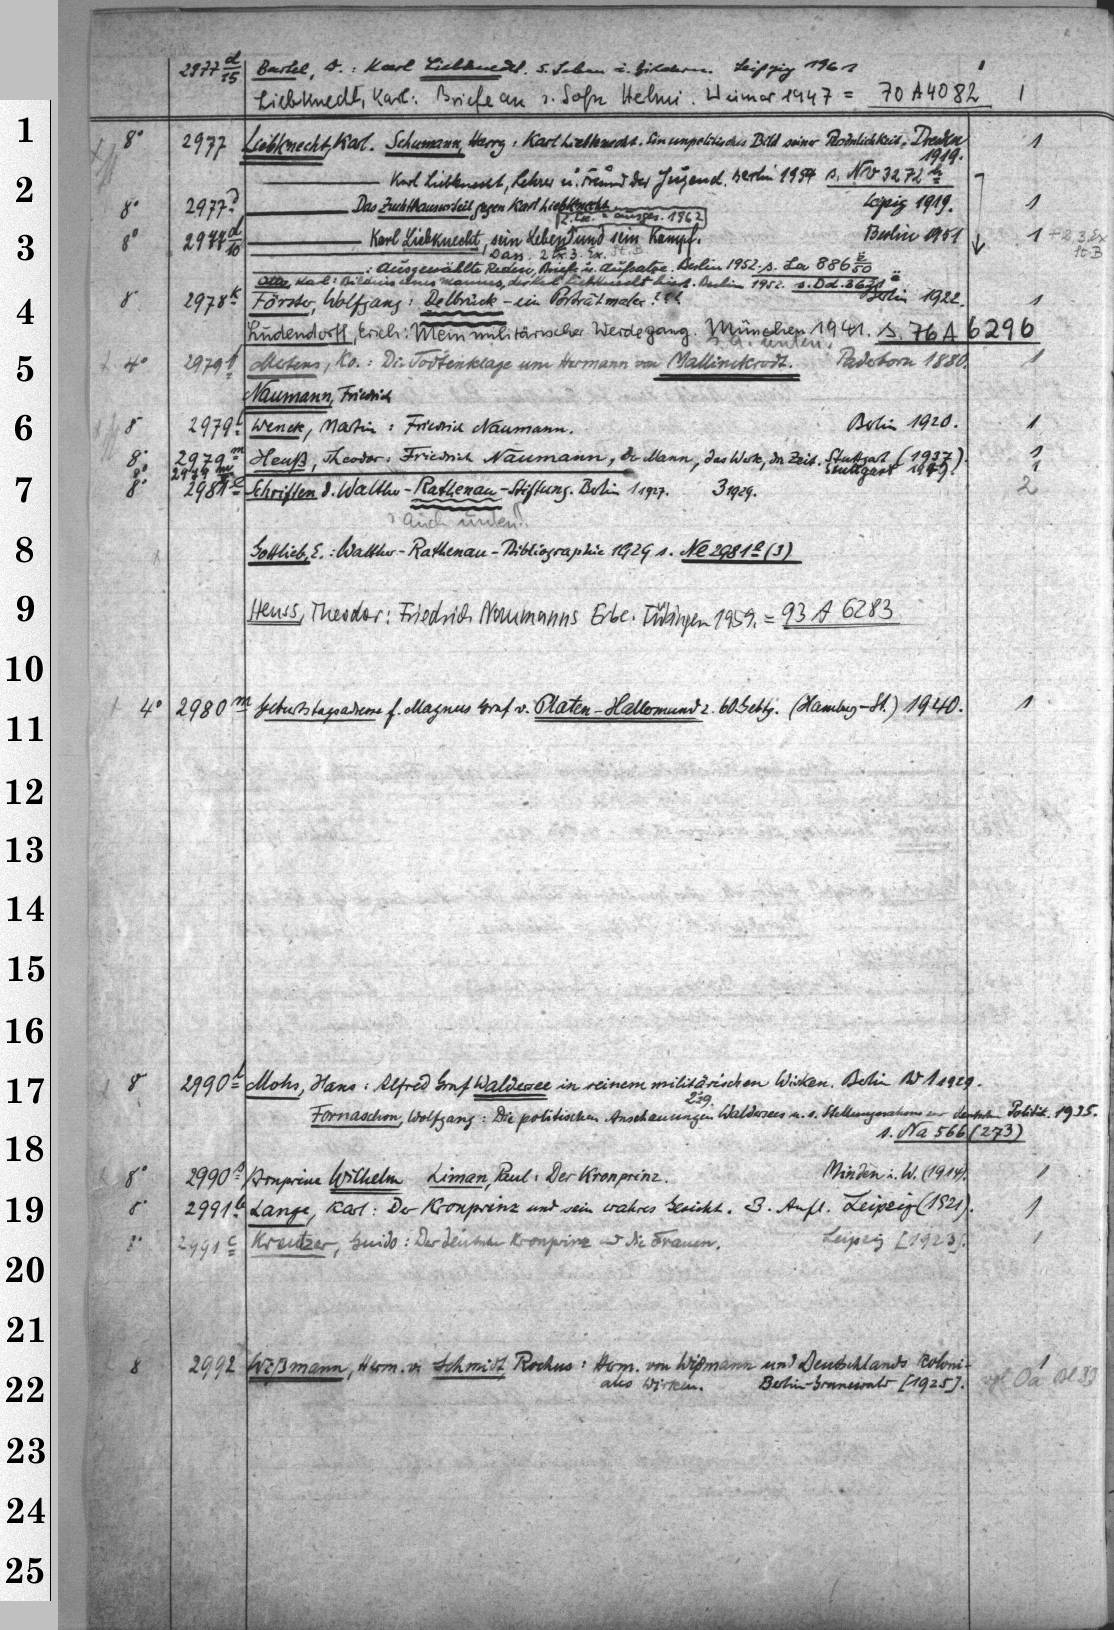 2977 d/15 Bartel, W.: Karl Liebknecht. s. Leben i. Bildern. Leipzig 1961 1
Liebknecht, Karl: Briefe an s. Sohn Helmi. Weimar 1947 = 70 A 4082 1
1 8° 2977 Liebknecht, Karl. Schumann, Harry: Karl Liebknecht. Ein unpolitisches Bild seiner Persönlichkeit. Dresden 1
1919.
2 Karl Liebknecht, Lehrer u. Freund der Jugend. Berlin 1954 s. Nv 3272
8° 2977 d Das Zuchthausurteil gegen Karl Liebknecht Leipzig 1919. 1
2. Ex. ausges. 1962
3 8° 2977 d/10 Karl Liebknecht, sein Leben und sein Kampf. Berlin 1951 1 + 2 3 Ex
Dass. 2. Ex. 3. Ex. St. B
: Ausgewählte Reden, Briefe u. Aufsätze. Berlin 1952. s. La 886 50
Otto, Karl: Bildnis eines Mannes, Berlin 1952. s. Dd. 3631
4 8° 2978 k Förster, Wolfgang: Delbrück – ein Porträtmaler!!! Berlin 1922. 1
Ludendorff, Erich: Mein militärischer Werdegang. München 1941. s. 76 A 6296
s. a. unten.
5 4° 2979 f Mertens, Ko.: Die Todtenklage um Hermann von Mallinckrodt. Paderborn 1880. 1
Naumann, Friedrich
6 8° 2979 l Wenck, Martin: Friedrich Naumann. Berlin 1920. 1
8° 2979 m Heuß, Theodor: Friedrich Naumann, der Mann, das Werk, die Zeit. Stuttgart (1937). 1
8° 2979 Stuttgart 1949. 1
7 8° 2981 a Schriften d. Walther-Rathenau-Stiftung. Berlin 1 1927. 3 1929. 2
auch unten!
8 Gottlieb, E.: Walther-Rathenau-Bibliographie 1929 s. Ne 2981 a (3)
9 Heuss, Theodor: Friedrich Naumanns Erbe. Tübingen 1959. = 93 A 6283
10
11 4° 2980 m Geburtstagsadresse f. Magnus Graf v. Platen-Hallermund z. 60. Gebtg. (Hamburg-St.) 1940. 1
12
13
14
15
16
17 8° 2990 b Mohs, Hans: Alfred Graf Waldersee in seinem militärischen Wirken. Berlin Bd 1 1929.
2 29.
Fornaschon, Wolfgang: Die politischen Anschauungen Waldersees u. s. Stellungnahme zur deutschen Politik. 1935.
s. Na 566 (273)
18 8° 2990 Kronprinz Wilhelm Liman, Paul: Der Kronprinz. Minden i. W. (1914). 1
19 8° 2991 b Lange, Karl: Der Kronprinz und sein wahres Gesicht. 3. Aufl. Leipzig (1921). 1
8° 2991 c Kreutzer, Guido: Der deutsche Kronprinz u. die Frauen. Leipzig [1923]. 1
20
21
22 8 2992 Wißmann, Herm. v. Schmidt, Rochus: Herm. von Wißmann und Deutschlands koloni- 1
ales Wirken. Berlin-Grunewald [1925]. vgl. Oa Bl 33
23
24
25